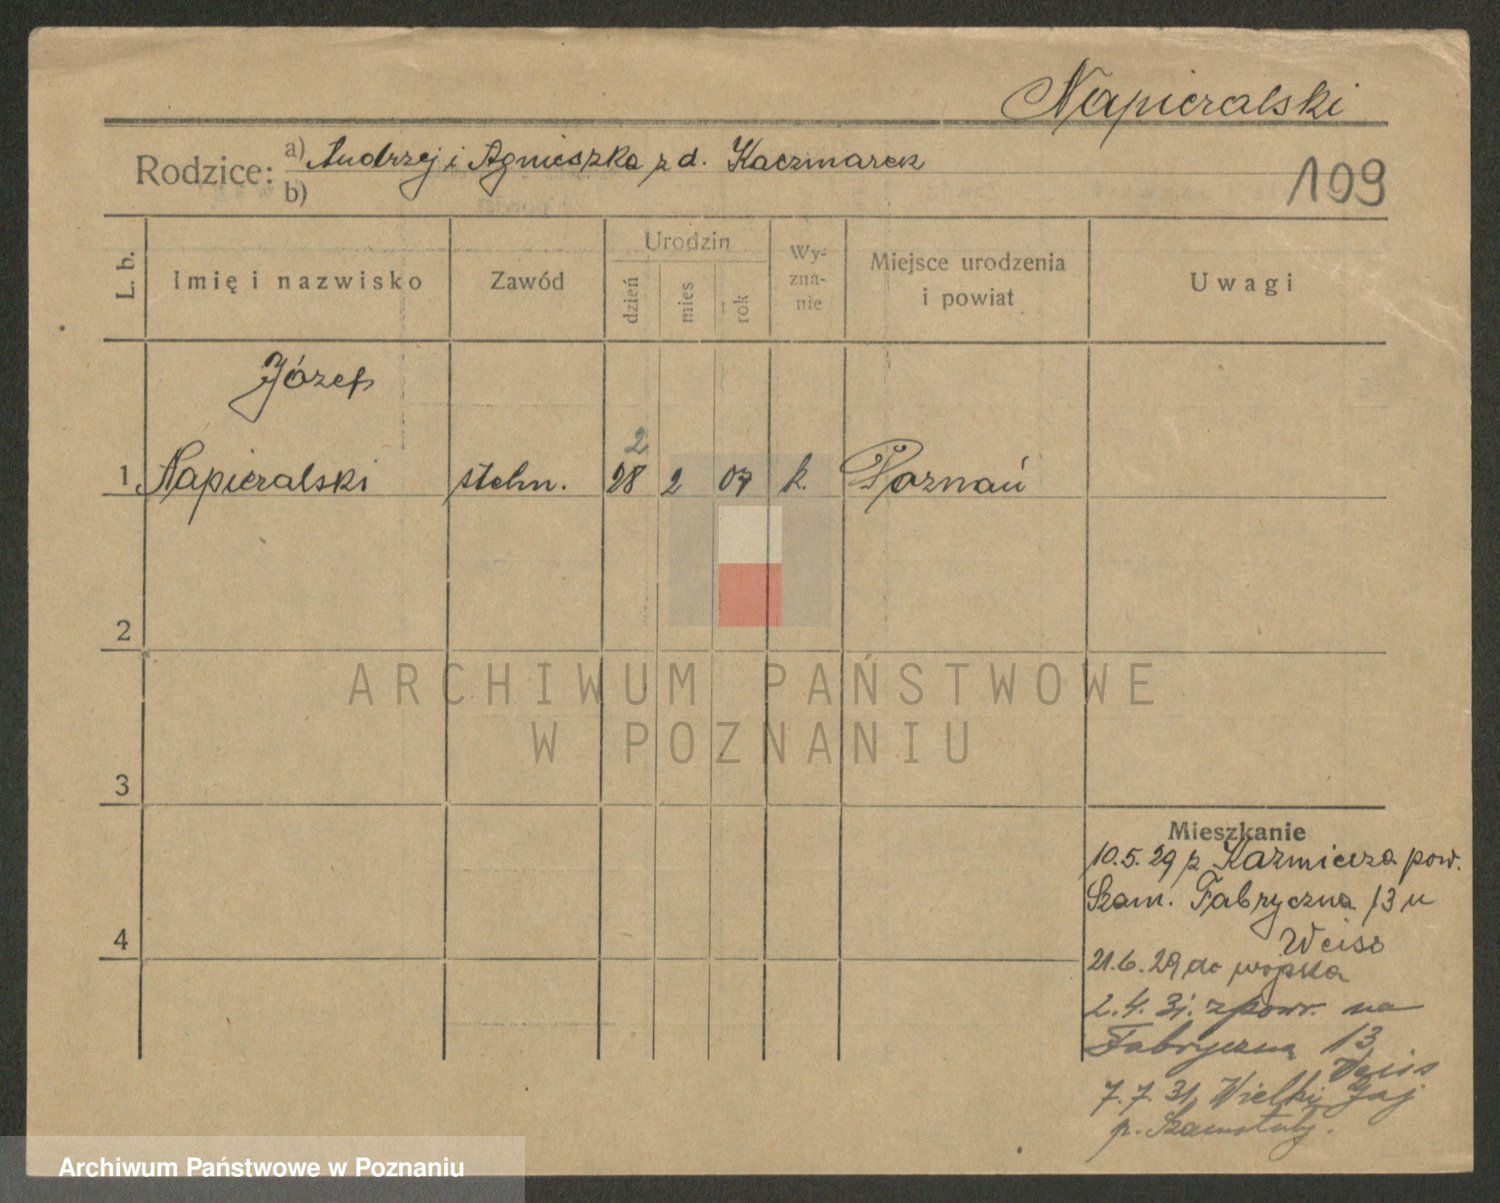 Napieralski
Rodzice: a) Andrzej i Agnieszka z d. Kaczmarek
b)
109
L. b.
Imię i nazwisko
Zawód
Urodzin
dzień
mies
rok
Wy-
zna-
nie
Miejsce urodzenia
i powiat
Uwagi
Józef
2
1 Napieralski steln. 28 2 07 k. Poznań
2
3
4
ARCHIWUM PAŃSTWOWE
W POZNANIU
Mieszkanie
10.5.29 z Kaźmierza pow.
Szam. Fabryczna 13 u
Weiss
21.6.29 do wojska
2.4.31. z powr. na
Fabryczną 13
Weiss
7.7.31 Wielki Gaj
p. Szamotuły.
Archiwum Państwowe w Poznaniu